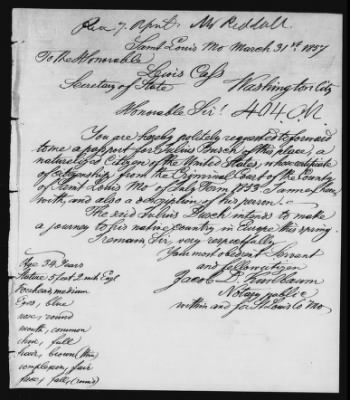 Saint Louis Mo March 31st 1857
To the Honorable
Lewis Cass
Secretary of State Washington City
Honorable Sir! 404 M
You are hereby politely requested to forward
to me a passport for Julius Busch of this place, a
naturalized Citizen of the United States, whose certificate
of citizenship from the Criminal Court of the County
of Saint Louis Mo of July Term 1853 I annex here
with, and also a description of his person.
The said Julius Busch intends to make
a journey to his native country, in Europe this spring.
I remain, Sir, very respectfully
Your most obedient Servant
and fellow citizen
Jacob
Notary public
within and for St Louis Co Mo.
Age 34 Years
Stature 5 feet 2 inch Engl
Forehead, medium
Eyes, blue
nose, round
mouth, common
chin, full
hair, brown (thin)
complexion, fair
face, full, (round)